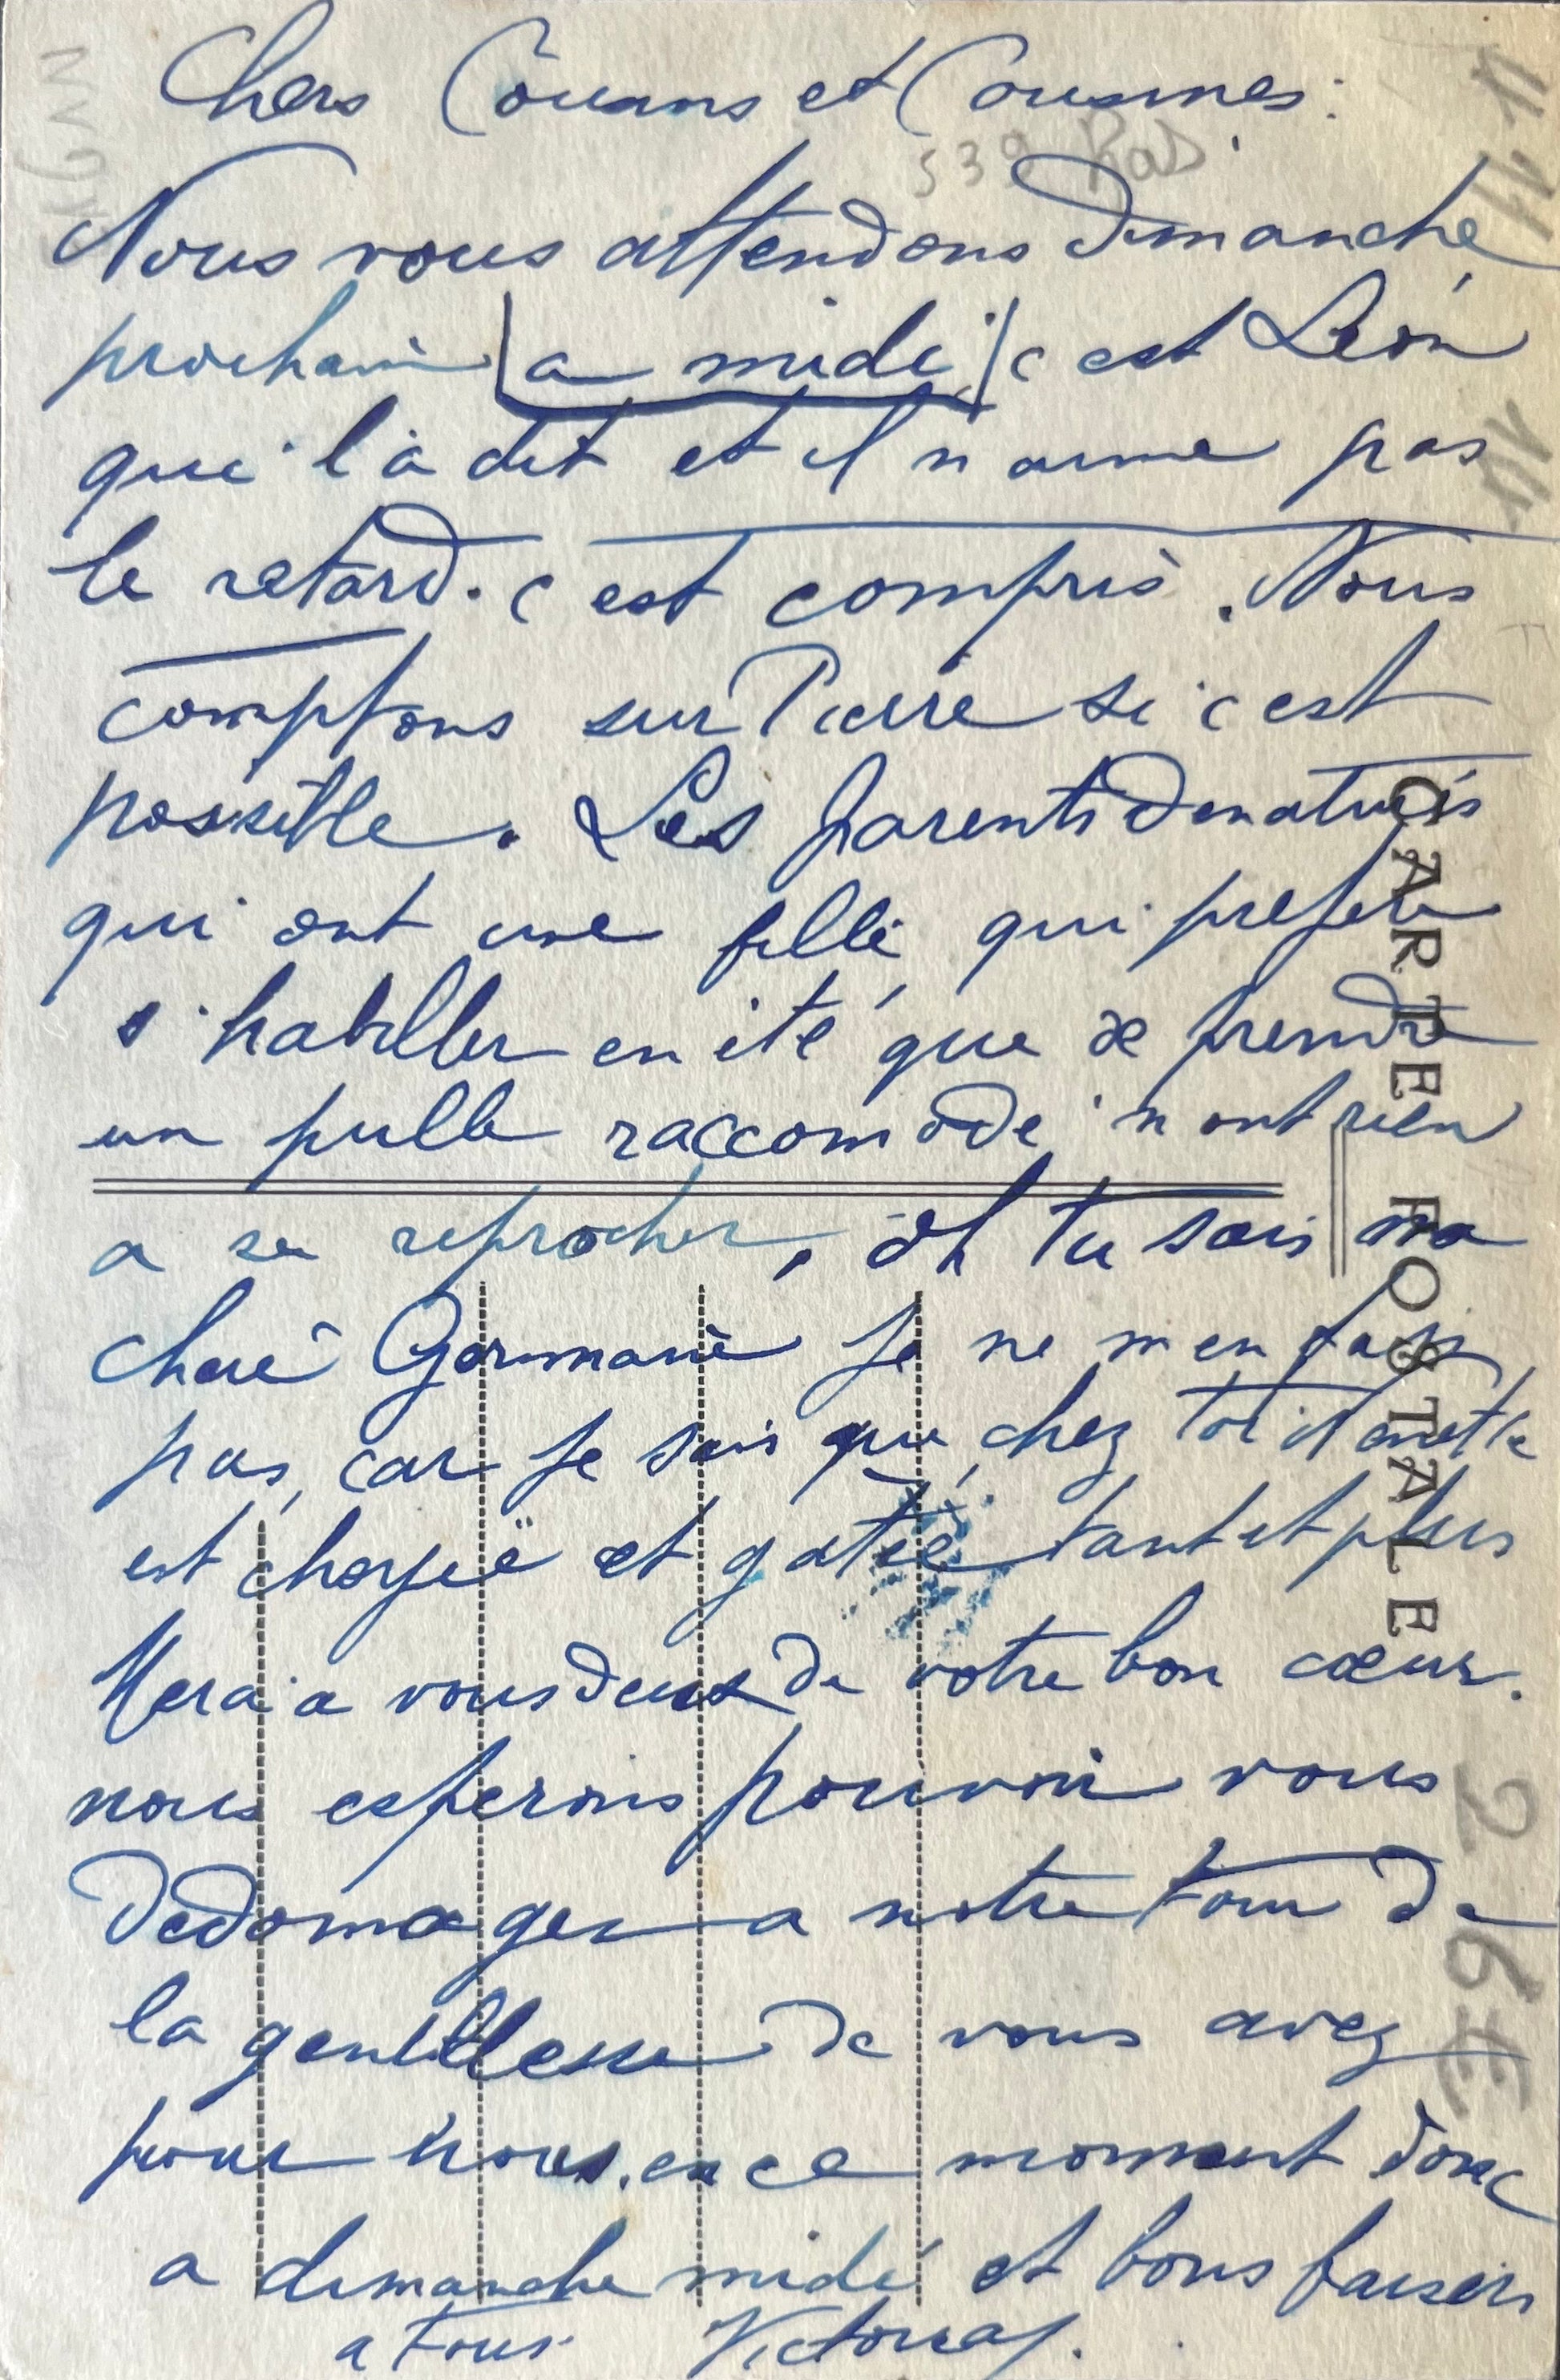 Chers Cousins et Cousines :
539 Ras
Nous vous attendons Dimanche
prochain a midi c est Léon
qui l'a dit et il n aime pas
le retard. c est compris. Nous
comptons sur Pierre si c est
possible. Les parents denaturés
qui ont une fille, qui prefere
s'habiller en été que de prendre
un pulle raccomodé n ont rien
a se reprocher, oh tu sais ma
chere Germaine Je ne m en fais
pas, car je sais que, chez toi
est choyée et gatée tant et plus
Merci a vous deux de votre bon cœur.
nous esperons pouvoir vous
Dedomager a notre tour de
la gentillesse de vous avez
pour nous. en ce moment donc
a dimanche midi et bons baisers
a tous
CARTE POSTALE
2
6E